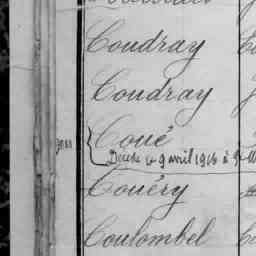 Coudray
Coudray
Coué
Décédé le 9 avril 1916 à
Couéry
Coulombel